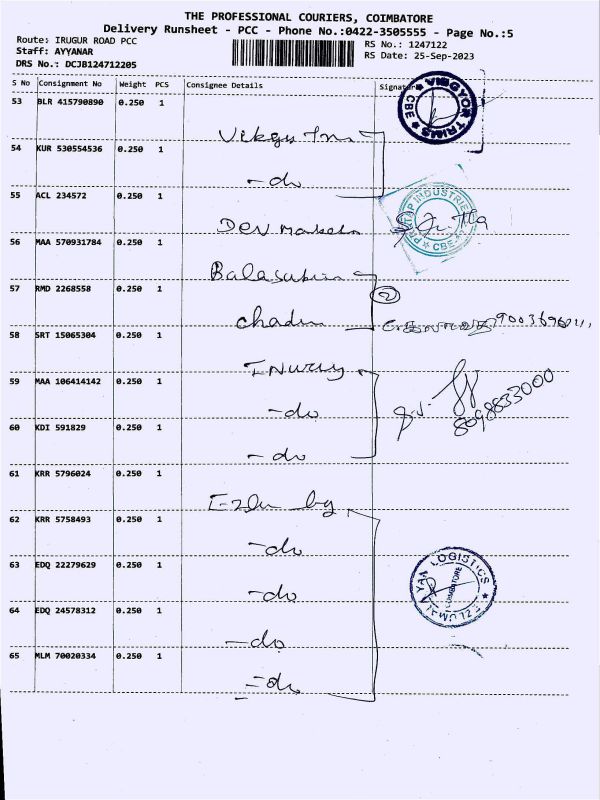 THE PROFESSIONAL COURIERS, COIMBATORE
Delivery Runsheet - PCC - Phone No.:0422-3505555 - Page No.:5
Route: IRUGUR ROAD PCC
RS No.: 1247122
Staff: AYYANAR
RS Date: 25-Sep-2023
DRS No.: DCJB124712205
S No Consignment No Weight PCS Consignee Details Signature
53 BLR 415790890 0.250 1
VIBGYOR TRIMS CBE
54 KUR 530554536 0.250 1
-do
55 ACL 234572 0.250 1
Dev
PRATAP INDUSTRIES CBE
56 MAA 570931784 0.250 1
57 RMD 2268558 0.250 1
2
58 SRT 15065304 0.250 1
59 MAA 106414142 0.250 1
-do
8098833000
60 KDI 591829 0.250 1
-do
61 KRR 5796024 0.250 1
62 KRR 5758493 0.250 1
-do
63 EDQ 22279629 0.250 1
-do
LOGISTICS
COIMBATORE
64 EDQ 24578312 0.250 1
-do
65 MLM 70020334 0.250 1
-do